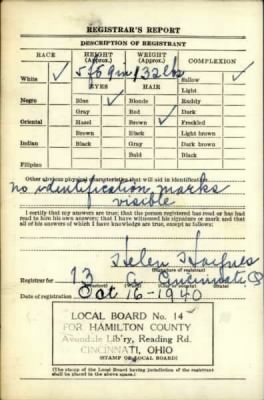 REGISTRAR'S REPORT
DESCRIPTION OF REGISTRANT
RACE HEIGHT (Approx.) WEIGHT (Approx.) COMPLEXION
White ✓ 5 ft 9 in 132 lbs Sallow ✓
EYES HAIR Light
Negro Blue ✓ Blonde Ruddy
Gray Red Dark
Oriental Hazel Brown ✓ Freckled
Brown Black Light brown
Indian Black Gray Dark brown
Bald Black
Filipino
Other obvious physical characteristics that will aid in identification
no identification marks
visible
I certify that my answers are true; that the person registered has read or has had
read to him his own answers; that I have witnessed his signature or mark and that
all of his answers of which I have knowledge are true, except as follows:
Helen
(Signature of registrar)
Registrar for 13 Cincinnati O
Date of registration Oct 16-1940
LOCAL BOARD No. 14
FOR HAMILTON COUNTY
Avondale Lib'ry, Reading Rd.
CINCINNATI, OHIO
(STAMP OF LOCAL BOARD)
(The stamp of the Local Board having jurisdiction of the registrant
shall be placed in the above space.)